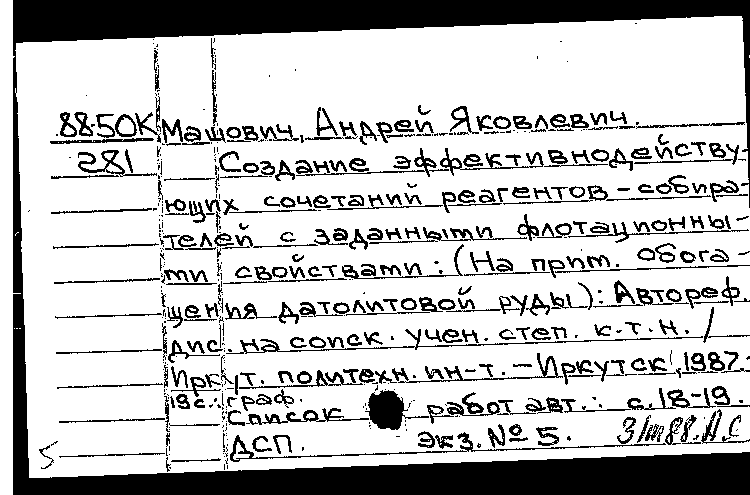 88-50К Машович, Андрей Яковлевич.
281 Создание эффективнодейству-
ющих сочетаний реагентов-собира-
телей с заданными флотационны-
ми свойствами: (На прим. обога-
щения датолитовой руды): Автореф.
дис. на соиск. учен. степ. к.т.н. /
Иркут. политехн. ин-т. – Иркутск, 1987.-
19с.: граф.
Список работ авт.: с.18-19.
5 ДСП. Экз. № 5.